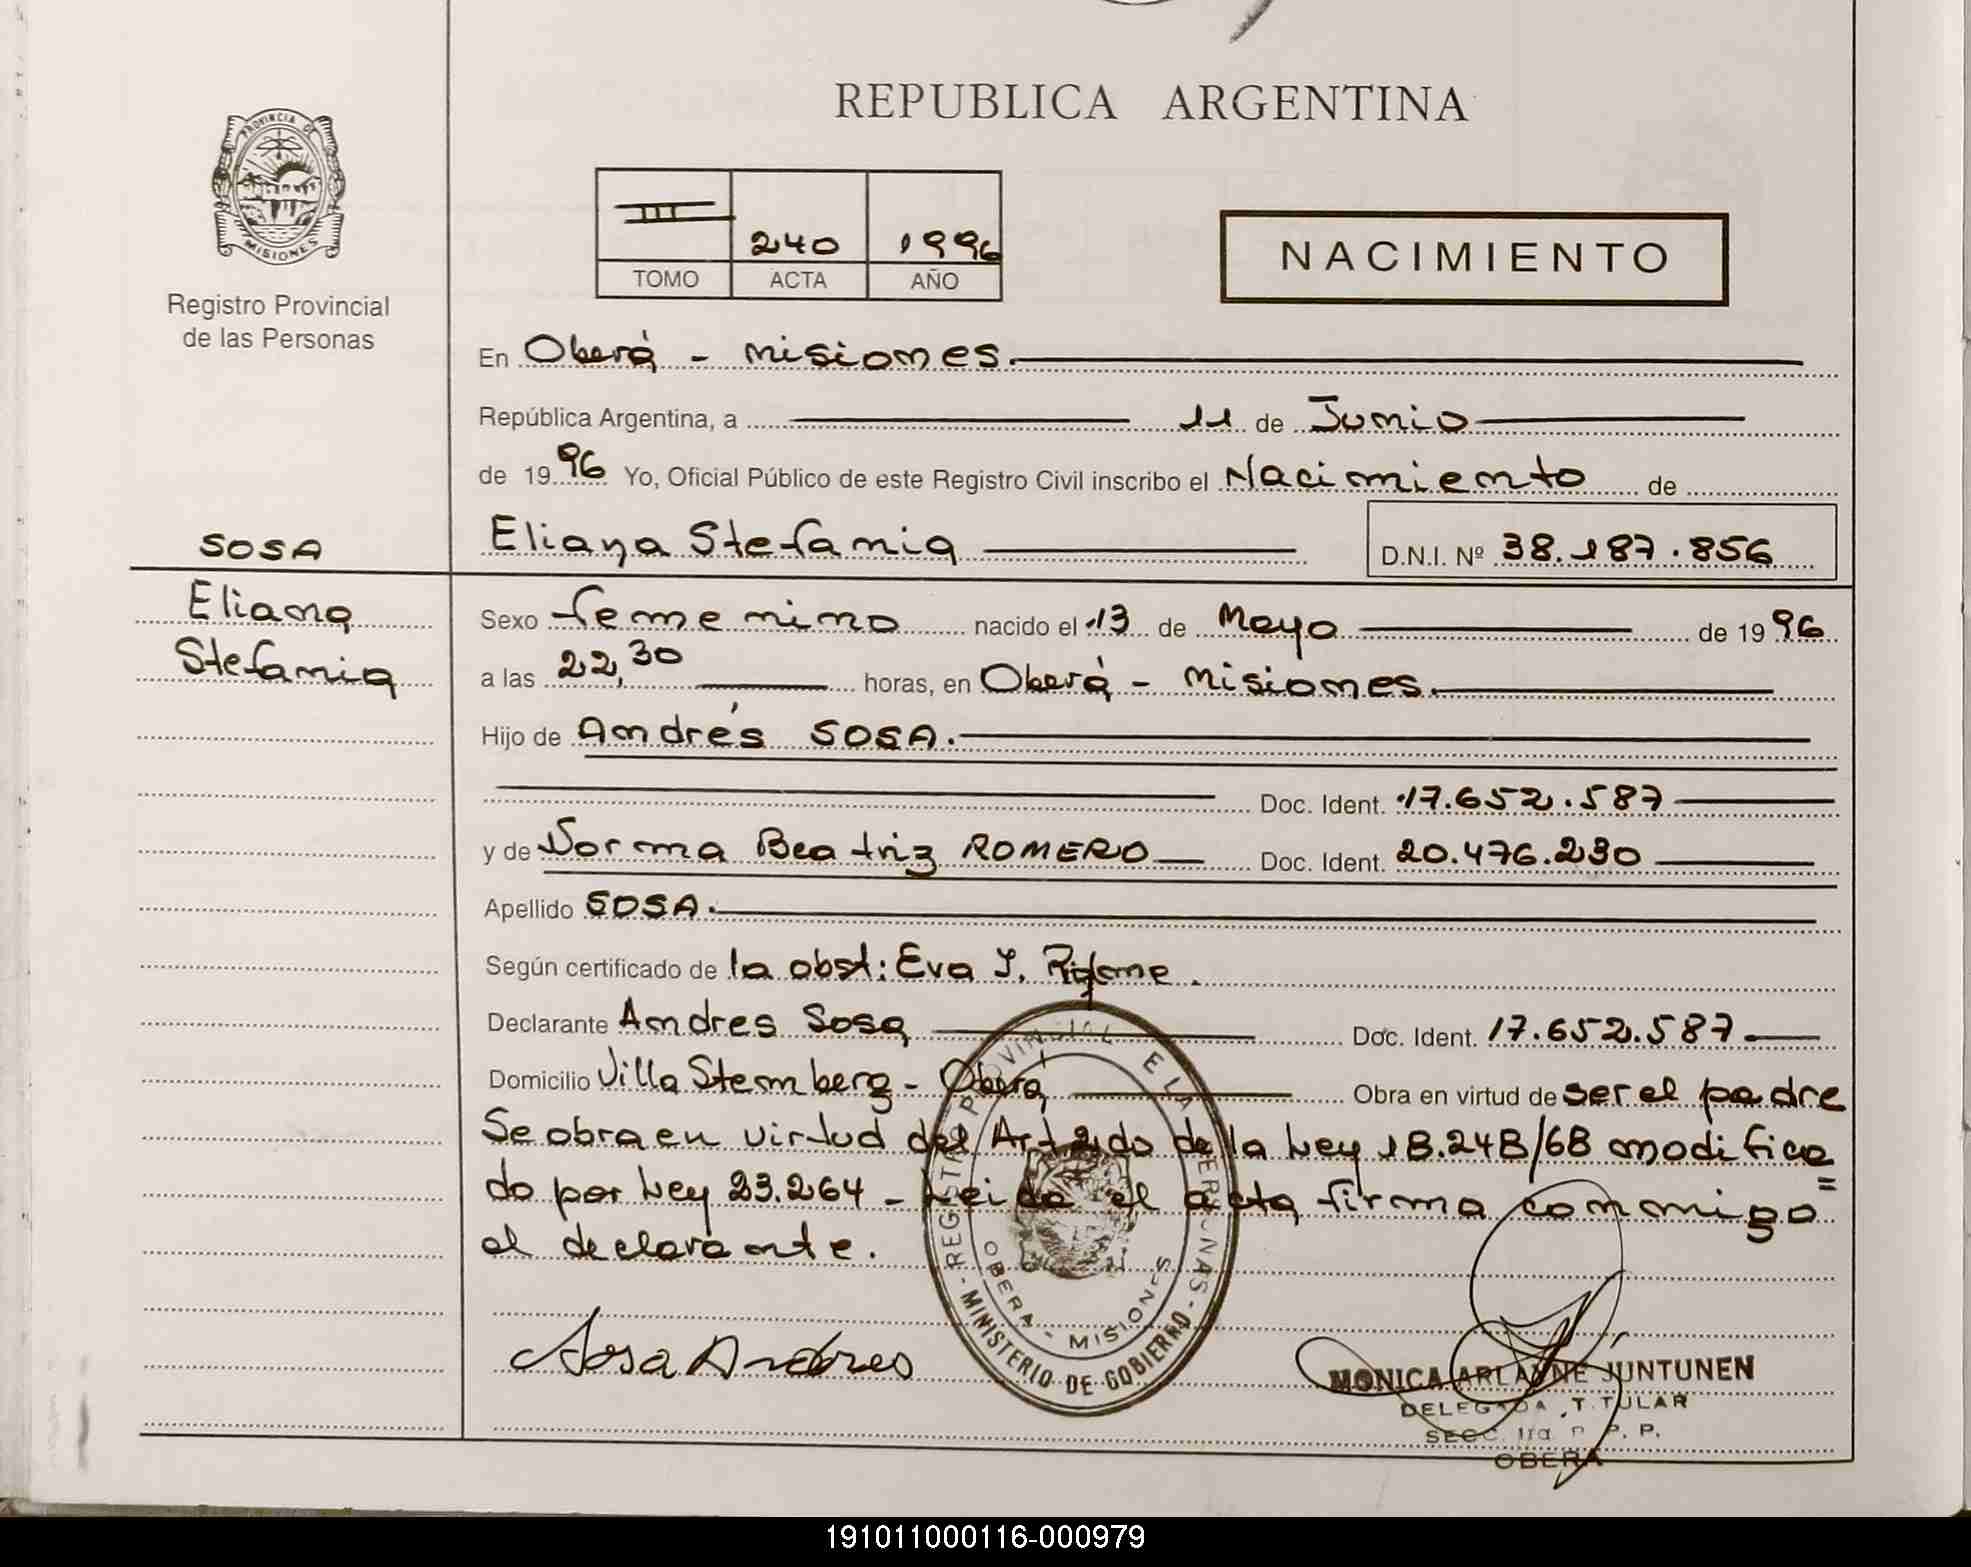 REPUBLICA ARGENTINA
PROVINCIA DE
MISIONES
Registro Provincial
de las Personas
III 240 1996
TOMO ACTA AÑO
NACIMIENTO
En Oberá - Misiones.
República Argentina, a 11 de Junio
de 1996 Yo, Oficial Público de este Registro Civil inscribo el Nacimiento de
SOSA
Eliana Stefania
D.N.I. Nº 38.187.856
Eliana
Stefania
Sexo femenino nacido el 13 de Mayo de 1996
a las 22,30 horas, en Oberá - Misiones.
Hijo de Andrés SOSA.
Doc. Ident. 17.652.587
y de Norma Beatriz ROMERO Doc. Ident. 20.476.230
Apellido SOSA.
Según certificado de la obst: Eva Y.
Declarante Andres Sosa Doc. Ident. 17.652.587
Domicilio Villa Stemberg - Oberá Obra en virtud de ser el padre
Se obra en virtud del Art 2do de la Ley 18.248/68 modifica
do por Ley 23.264 - Leida el acta firma conmigo=
el declarante.
Sosa Andres
REGISTRO PROVINCIAL DE LAS PERSONAS
OBERA - MISIONES
MINISTERIO DE GOBIERNO
MONICA ARLAYNE JUNTUNEN
DELEGADA TITULAR
SECC. 1ra R. P. P.
OBERA
191011000116-000979